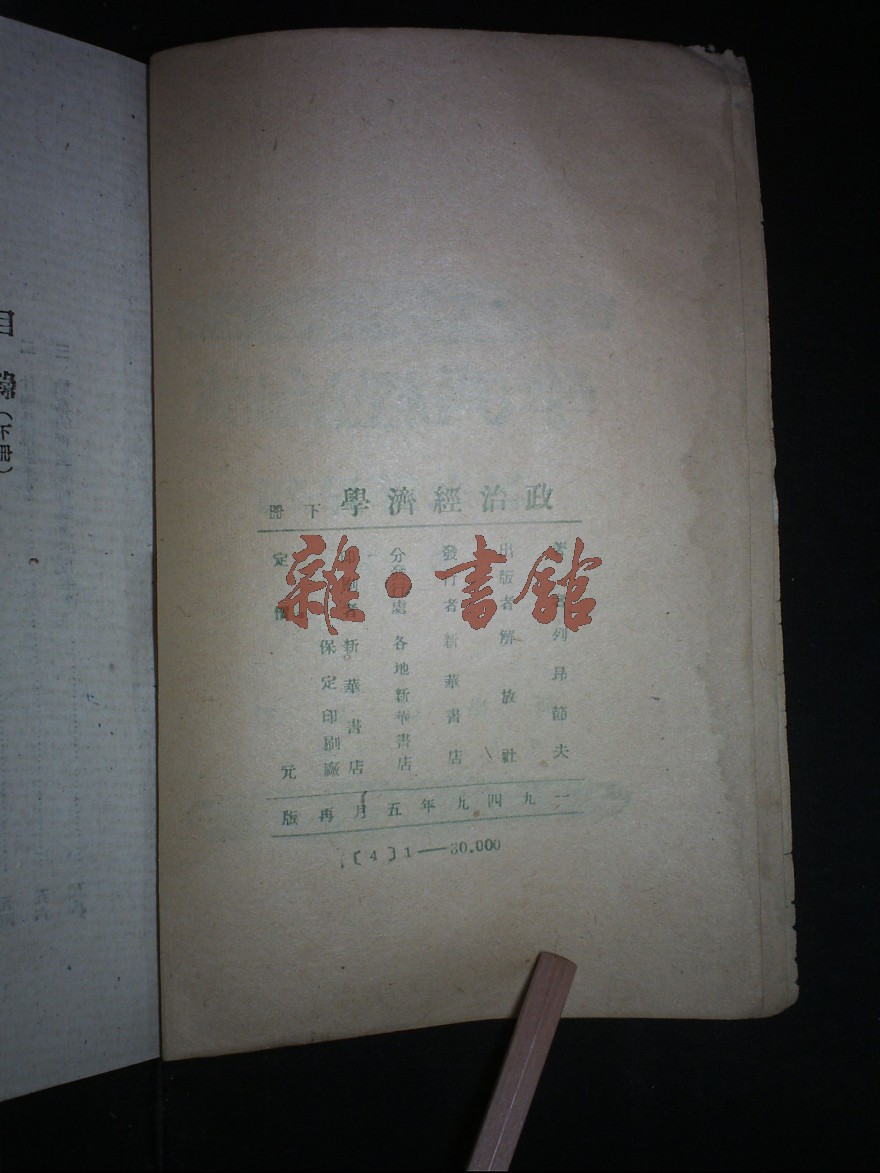 政治經濟學 下冊
著者 列昂節夫
出版者 解放社
發行者 新華書店
分發行處 各地新華書店
印刷者 新華書店
保定印刷廠
定價 元
一九四九年五月再版
〔4〕1——30.000
雜·書館
目錄(下冊)